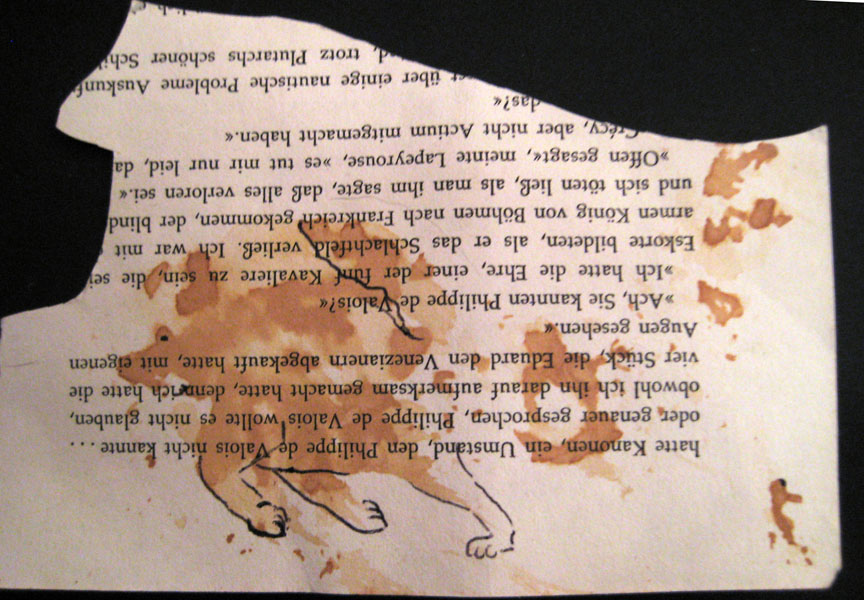 hatte Kanonen, ein Umstand, den Philippe de Valois nicht kannte ...
oder genauer gesprochen, Philippe de Valois wollte es nicht glauben,
obwohl ich ihn darauf aufmerksam gemacht hatte, denn ich hatte die
vier Stück, die Eduard den Venezianern abgekauft hatte, mit eigenen
Augen gesehen.«
»Ach, Sie kannten Philippe de Valois?«
»Ich hatte die Ehre, einer der fünf Kavaliere zu sein, die sei
Eskorte bildeten, als er das Schlachtfeld verließ. Ich war mit
armen König von Böhmen nach Frankreich gekommen, der blind
und sich töten ließ, als man ihm sagte, daß alles verloren sei.«
»Offen gesagt«, meinte Lapeyrouse, »es tut mir nur leid, da
Crécy, aber nicht Actium mitgemacht haben.«
das?«
über einige nautische Probleme Auskunft
trotz Plutarchs schöner Schil